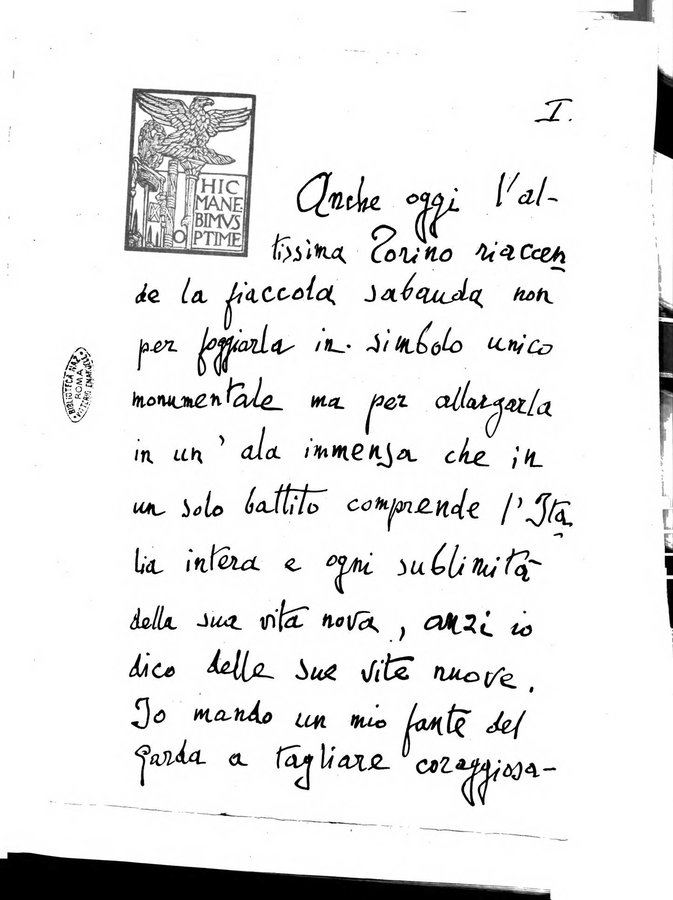 I.
HIC
MANE
BIMVS
OPTIME
Anche oggi l'al-
tissima Torino riaccen
de la fiaccola sabauda non
per foggiarla in simbolo unico
monumentale ma per allargarla
in un' ala immensa che in
un solo battito comprende l'Ita
lia intera e ogni sublimità
della sua vita nova, anzi io
dico delle sue vite nuove.
Io mando un mio fante del
Garda a tagliare coraggiosa-
BIBLIOTECA NAZ.
ROMA
VITTORIO EMANUELE